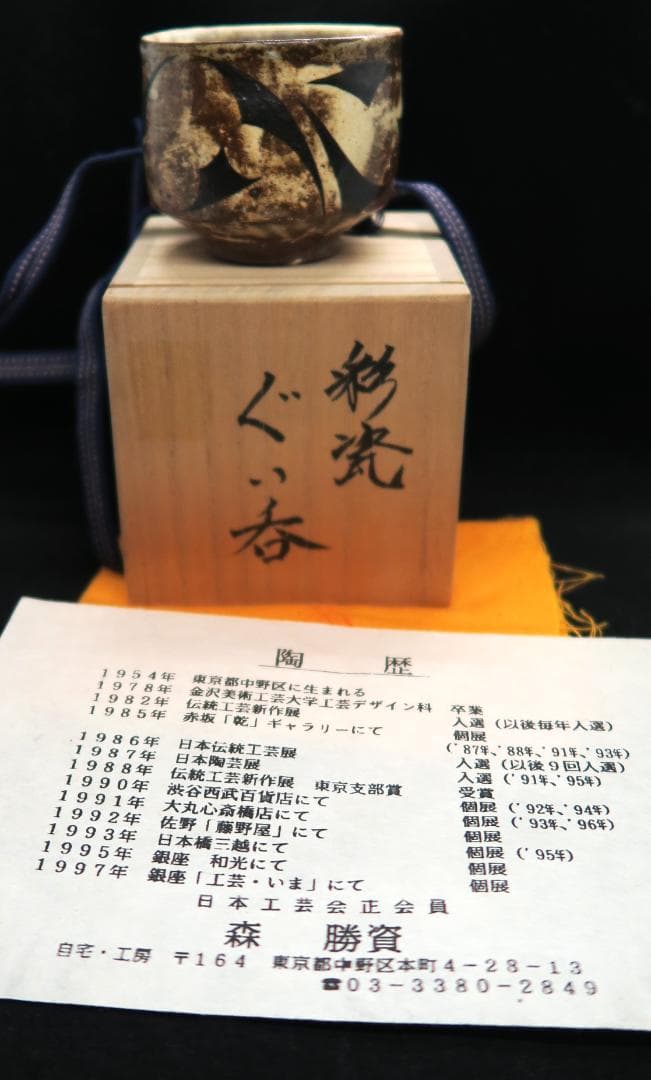 彩瓷
ぐい呑
陶歴
1954年 東京都中野区に生まれる
1978年 金沢美術工芸大学工芸デザイン科 卒業
1982年 伝統工芸新作展 入選（以後毎年入選）
1985年 赤坂「乾」ギャラリーにて 個展
（'87年、'88年、'91年、'93年）
1986年 日本伝統工芸展 入選（以後9回入選）
1987年 日本陶芸展 入選（'91年、'95年）
1988年 伝統工芸新作展 東京支部賞 受賞
1990年 渋谷西武百貨店にて 個展（'92年、'94年）
1991年 大丸心斎橋店にて 個展（'93年、'96年）
1992年 佐野「藤野屋」にて 個展
1993年 日本橋三越にて 個展（'95年）
1995年 銀座 和光にて 個展
1997年 銀座「工芸・いま」にて 個展
日本工芸会正会員
森 勝資
自宅・工房 〒164 東京都中野区本町4-28-13
☎03-3380-2849